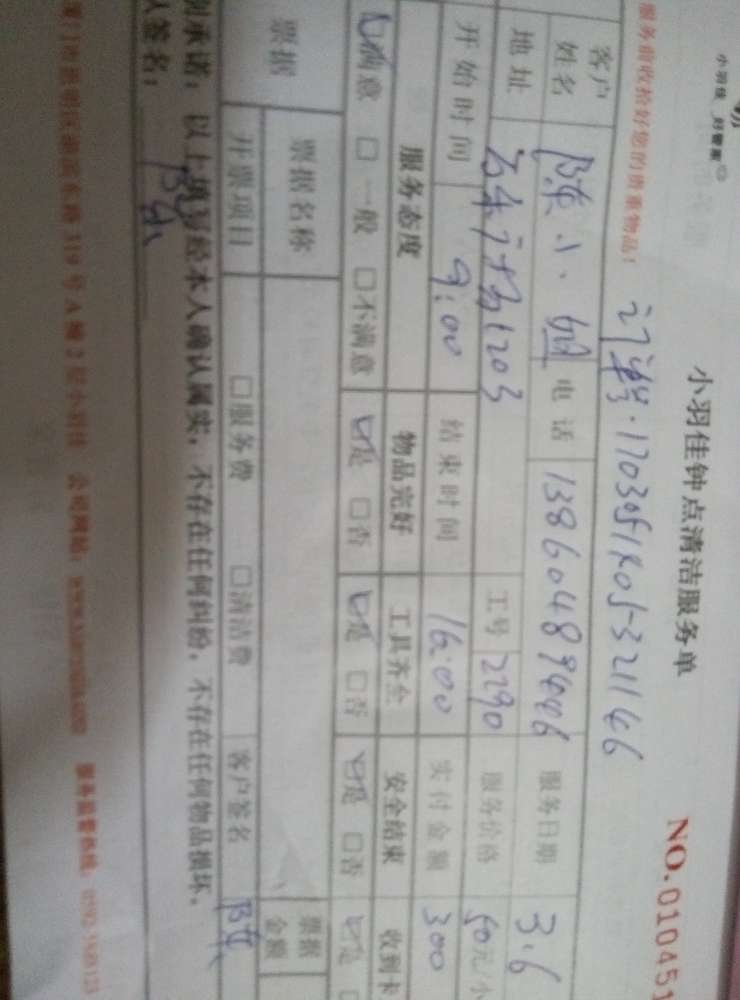 小羽佳 好管家
小羽佳钟点清洁服务单 NO.010451
服务前收拾好您的贵重物品！
客户姓名 陈小姐 电话 服务日期 3.6
地址 1203 工号 2290 服务价格 50元/小
开始时间 9:00 结束时间 16:00 实付金额 300
服务态度 物品完好 工具齐全 安全结束 收到卡
☑满意 □一般 □不满意 ☑是 □否 ☑是 □否 ☑是 □否 ☑是
票据 票据名称 票据金额
开票项目 □服务费 □清洁费 客户签名 陈
承诺：以上填写经本人确认属实，不存在任何纠纷，不存在任何物品损坏。
人签名：
319号A幢2层小羽佳 公司网站： 服务监督热线：